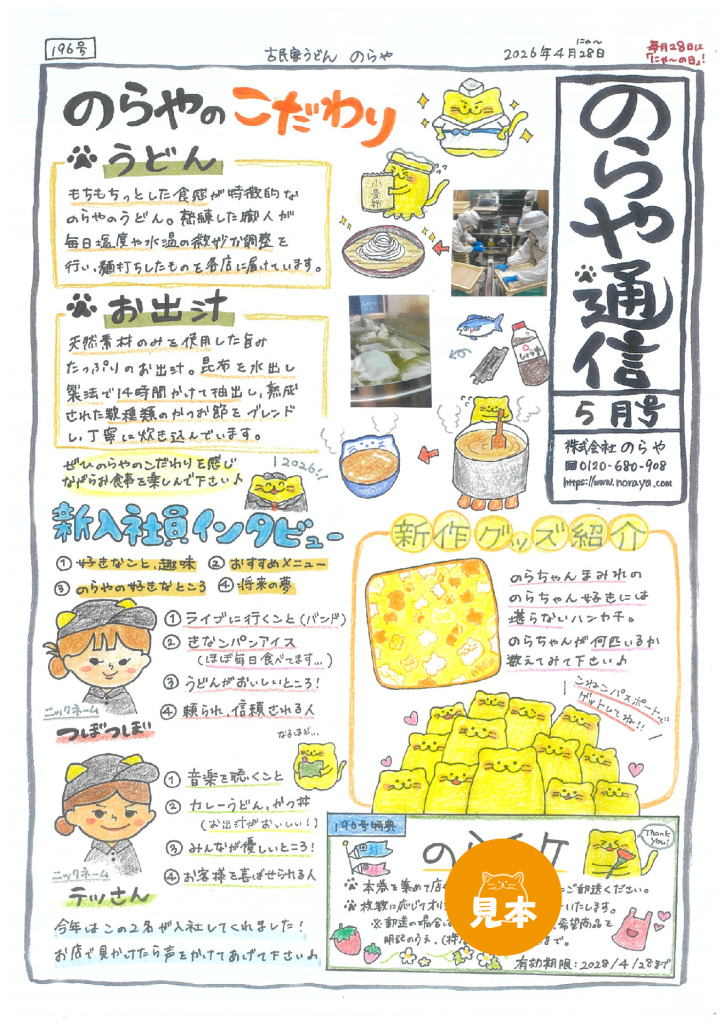 196号
古民家うどん のらや
にゃ〜
2026年4月28日
毎月28日は
「にゃ〜の日」!
のらや通信
5月号
株式会社 のらや
0120-680-908
https://www.noraya.com
のらやのこだわり
うどん
もちもちっとした食感が特徴的な
のらやのうどん。熟練した職人が
毎日温度や水温の微妙な調整を
行い、麺打ちしたものを各店に届けています。
小麦粉
お出汁
天然素材のみを使用した旨み
たっぷりのお出汁。昆布を水出し
製法で14時間かけて抽出し、熟成
された数種類のかつお節をブレンド
し、丁寧に炊き込んでいます。
しょうゆ
ぜひのらやのこだわりを感じ
ながらお食事を楽しんで下さい♪
2026!!
新入社員インタビュー
① 好きなこと、趣味 ② おすすめメニュー
③ のらやの好きなところ ④ 将来の夢
① ライブに行くこと(バンド)
② きなこパンアイス
(ほぼ毎日食べてます...)
③ うどんがおいしいところ!
④ 頼られ、信頼される人
ニックネーム
つぼつぼ
なるほど...
① 音楽を聴くこと
② カレーうどん、かつ丼
(お出汁がおいしい!)
③ みんなが優しいところ!
④ お客様を喜ばせられる人
ニックネーム
テッさん
今年はこの2名が入社してくれました!
お店で見かけたら声をかけてあげて下さい♪
新作グッズ紹介
のらちゃんまみれの
のらちゃん好きには
堪らないハンカチ。
のらちゃんが何匹いるか
数えてみて下さい♪
こねこパスポートで
ゲットしてね!!
196号特典
のらチケ
Thank
You!
本券を集めて店
ご郵送ください。
枚数に応じてオリ
いたします。
※郵送の場合は
希望商品を
明記のうえ、(株
まで。
見本
有効期限:2028/4/28まで